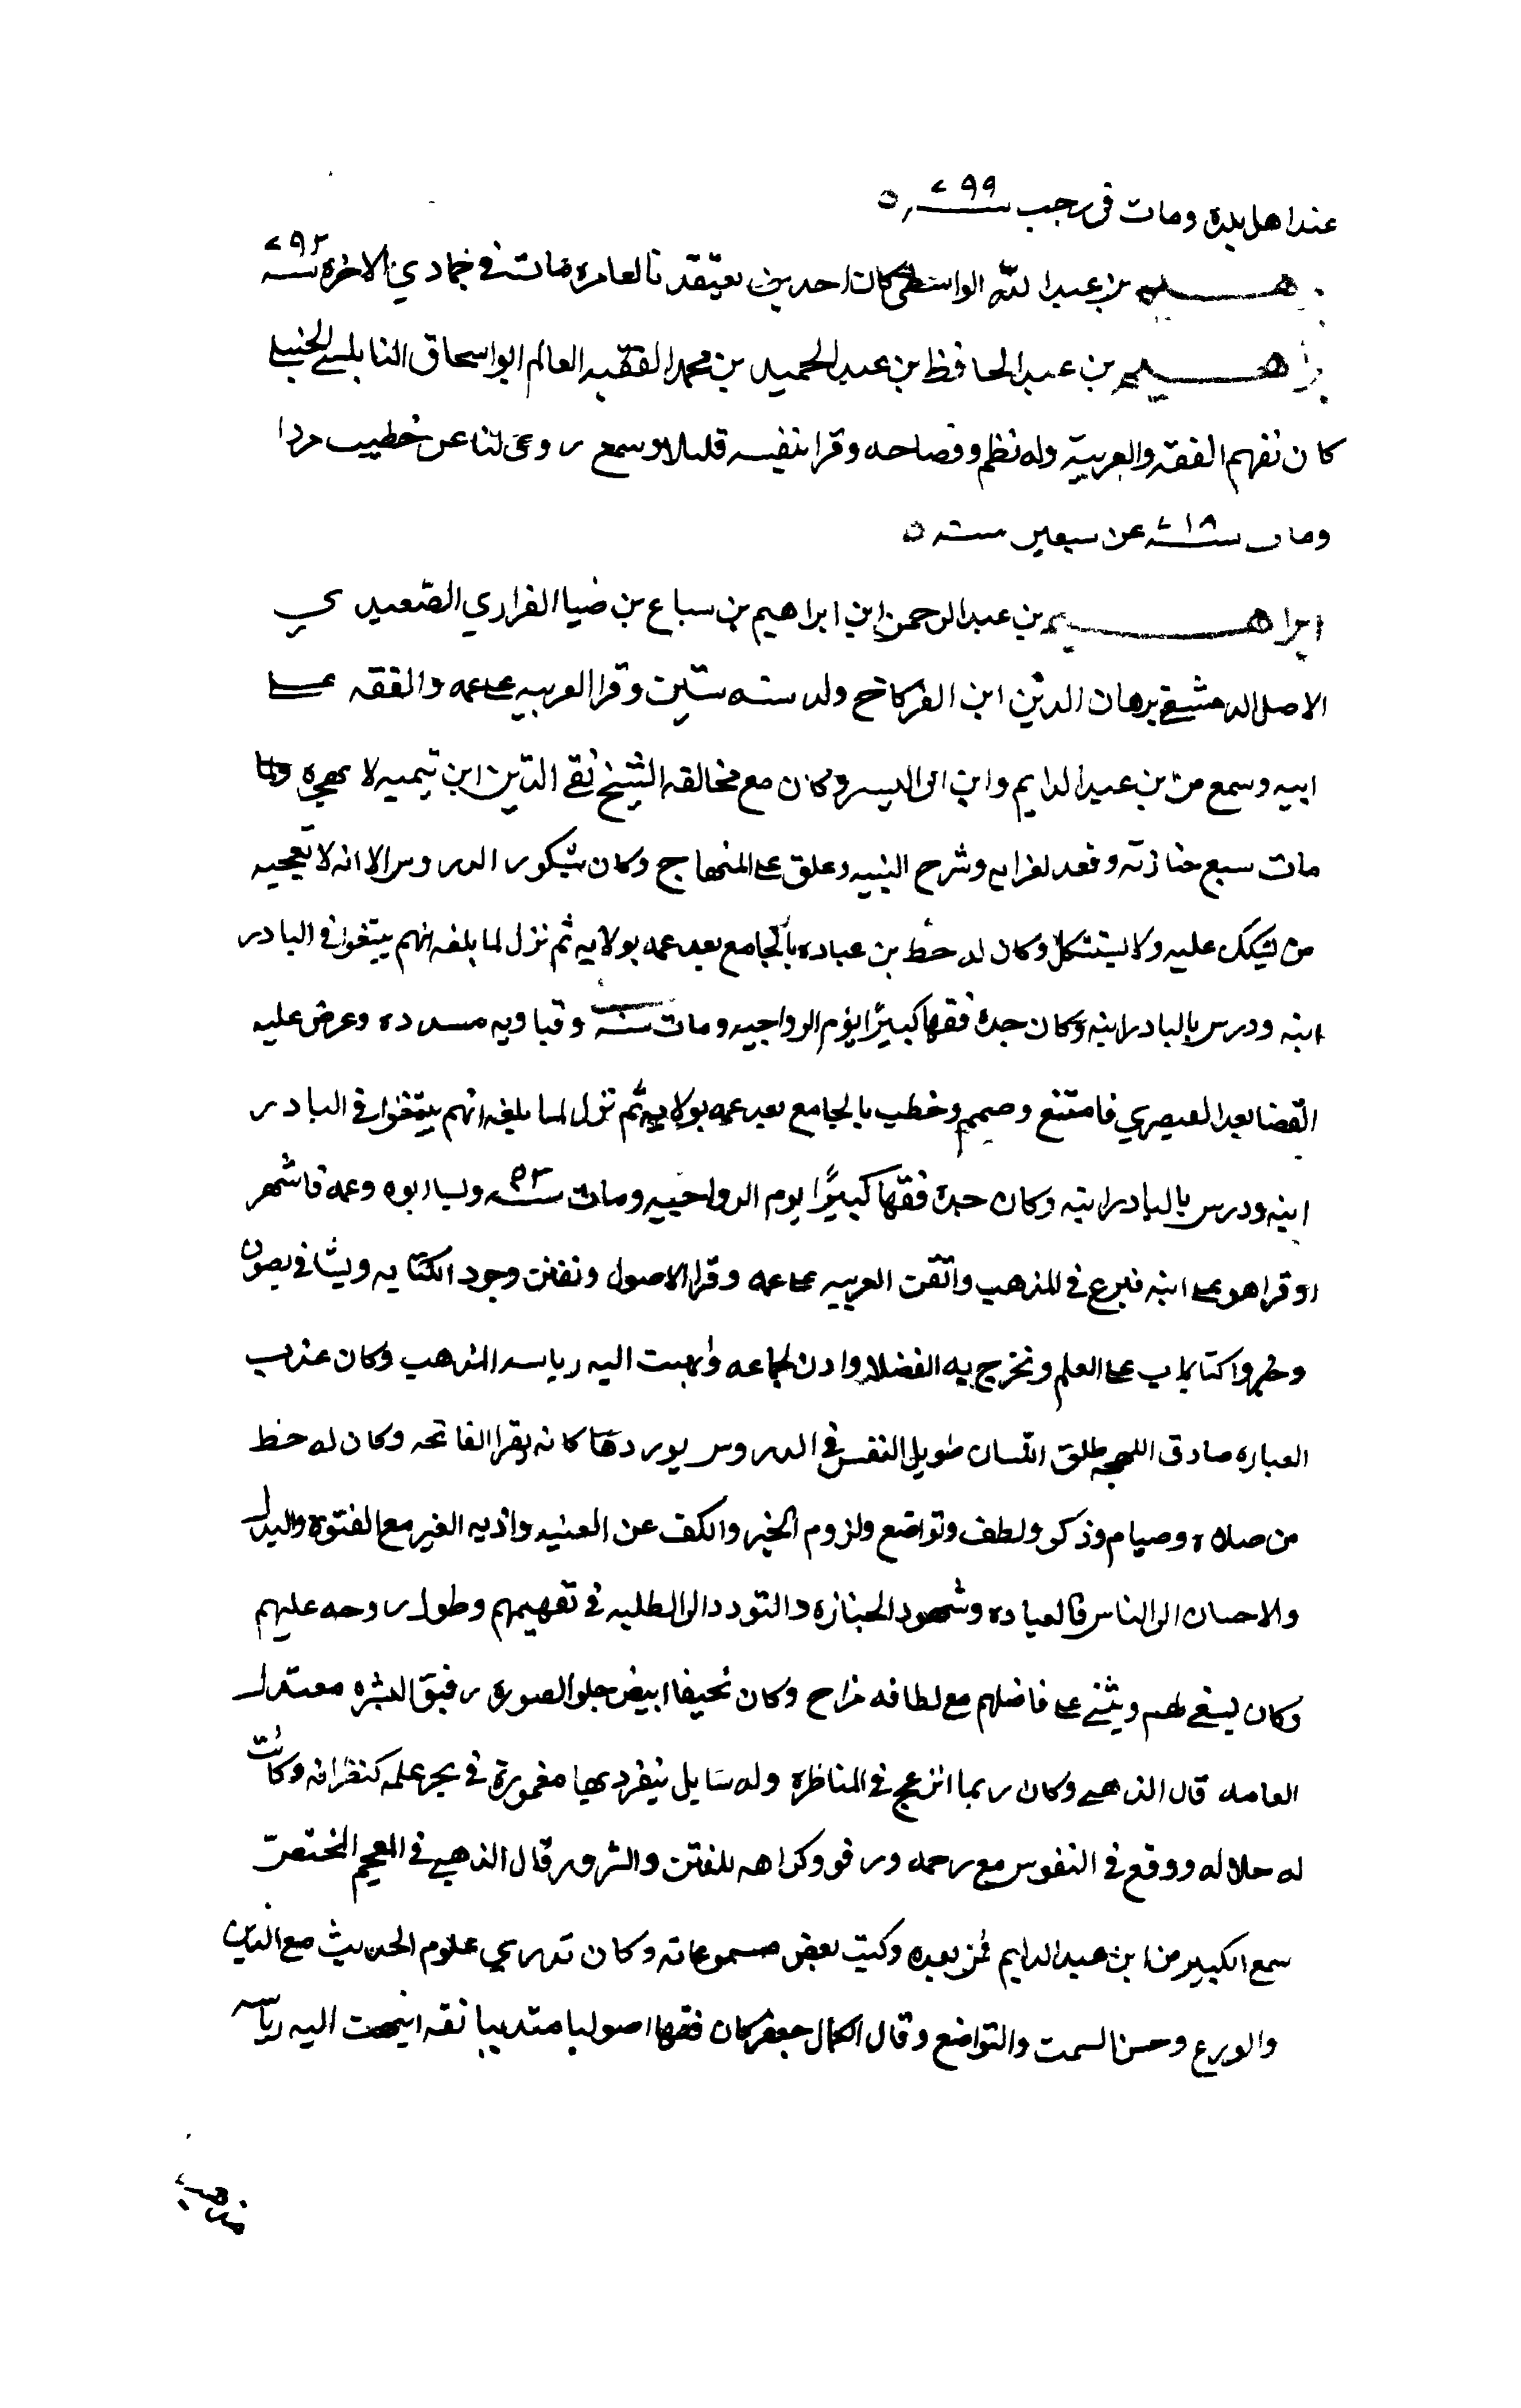 عند اهل بلده ومات فى رجب سنه ٧٩٩ ٥
ابراهيم بن عبد الله الواسطى كان احد من يعتقد بالعامره مات فى جمادي الاخره سنه ٧٩٢
ابراهيم بن عبد الحافظ بن عبد الحميد بن محمد الفقيه العالم ابو اسحاق النابلسي الحنبلي
كان يفهم الفقه والعربية وله نظم وفصاحه وقرا بنفسه قليلا وسمع روى لنا عن خطيب مردا
ومات سنه ٧١٨ عن سبعين سنه ٥
ابراهيم بن عبد الرحمن ابن ابراهيم بن سباع بن ضيا الفزاري الصعيدي
الاصل الدمشقي برهان الدين ابن الفركاح ولد سنه ستين وقرا العربيه على عمه والفقه على
ابيه وسمع من بن عبد الدايم وابن ابى اليسر وكان مع مخالفه الشيخ تقي الدين ابن تيميه لا يهجره ولما
مات سبع جنازته وقعد لعزايه وشرح التنبيه وعلق على المنهاج وكان يشكور الدروس الا انه لا يعجبه
من يشكك عليه ولا يستشكل وكان له حط بن عباده بالجامع بعد عمه بولايه ثم نزل لما بلغه انهم يبتغوا فى البادر
ابنه ودرس بالبادرابنه وكان جده فقيها كبيرا يؤم الرواجيه ومات سنه وفتاويه مسدده وعرض عليه
القضا بعد العبصري فامتنع وصمم وخطب بالجامع بعد عمه بولايه ثم نزل لما بلغه انهم يبتغوا فى البادر
ابنه ودرس بالبادرابنه وكان جده فقيها كبيرا يوم الرواحيه ومات سنه ٥٣ وساد ابوه وعمه فاشهر
اوقرا هو على ابنه فبرع فى المذهب واتقن العربيه على عمه وقرا الاصول وتفنن وجود الكتابه ونشا فى بصون
وخير واكتاب على العلم وتخرج به الفضلا واذن لجماعه وانهت اليه رياسه المذهب وكان عذب
العباره صادق اللهجه طلق اللسان طويل النفس فى الدروس يوردها كانه يقرا الفاتحه وكان له حظ
من صلاه وصيام وذكر ولطف وتواضع ولزوم الخير والكف عن الغيبه واذيه الغير مع الفتوه والبذل
والاحسان الى الناس فالعياده وشهود الجنازه والتودد الى الطلبه فى تفهيمهم وطول روحه عليهم
وكان يسعى لهم ويثني على فاضلهم مع لطافه مزاح وكان نحيفا ابيض حلو الصوره رقيق البشره معتدل
العامه قال الذهبي وكان ربما انزعج فى المناظره وله مسايل ينفرد بها مغمورة فى بحر علمه كنظرائه وكانت
له جلاله ووقع فى النفوس مع رحمه ورفق وكراهه للفتن والشرور قال الذهبي فى المعجم المختص
سمع الكبير من ابن عبد الدايم فمن بعده وكتب بعض مسموعاته وكان تدري علوم الحديث مع الدين
والورع وحسن السمت والتواضع وقال الكمال جعفر كان فقيها اصوليا متدينا ثقه انتهت اليه رياسه
مذهب